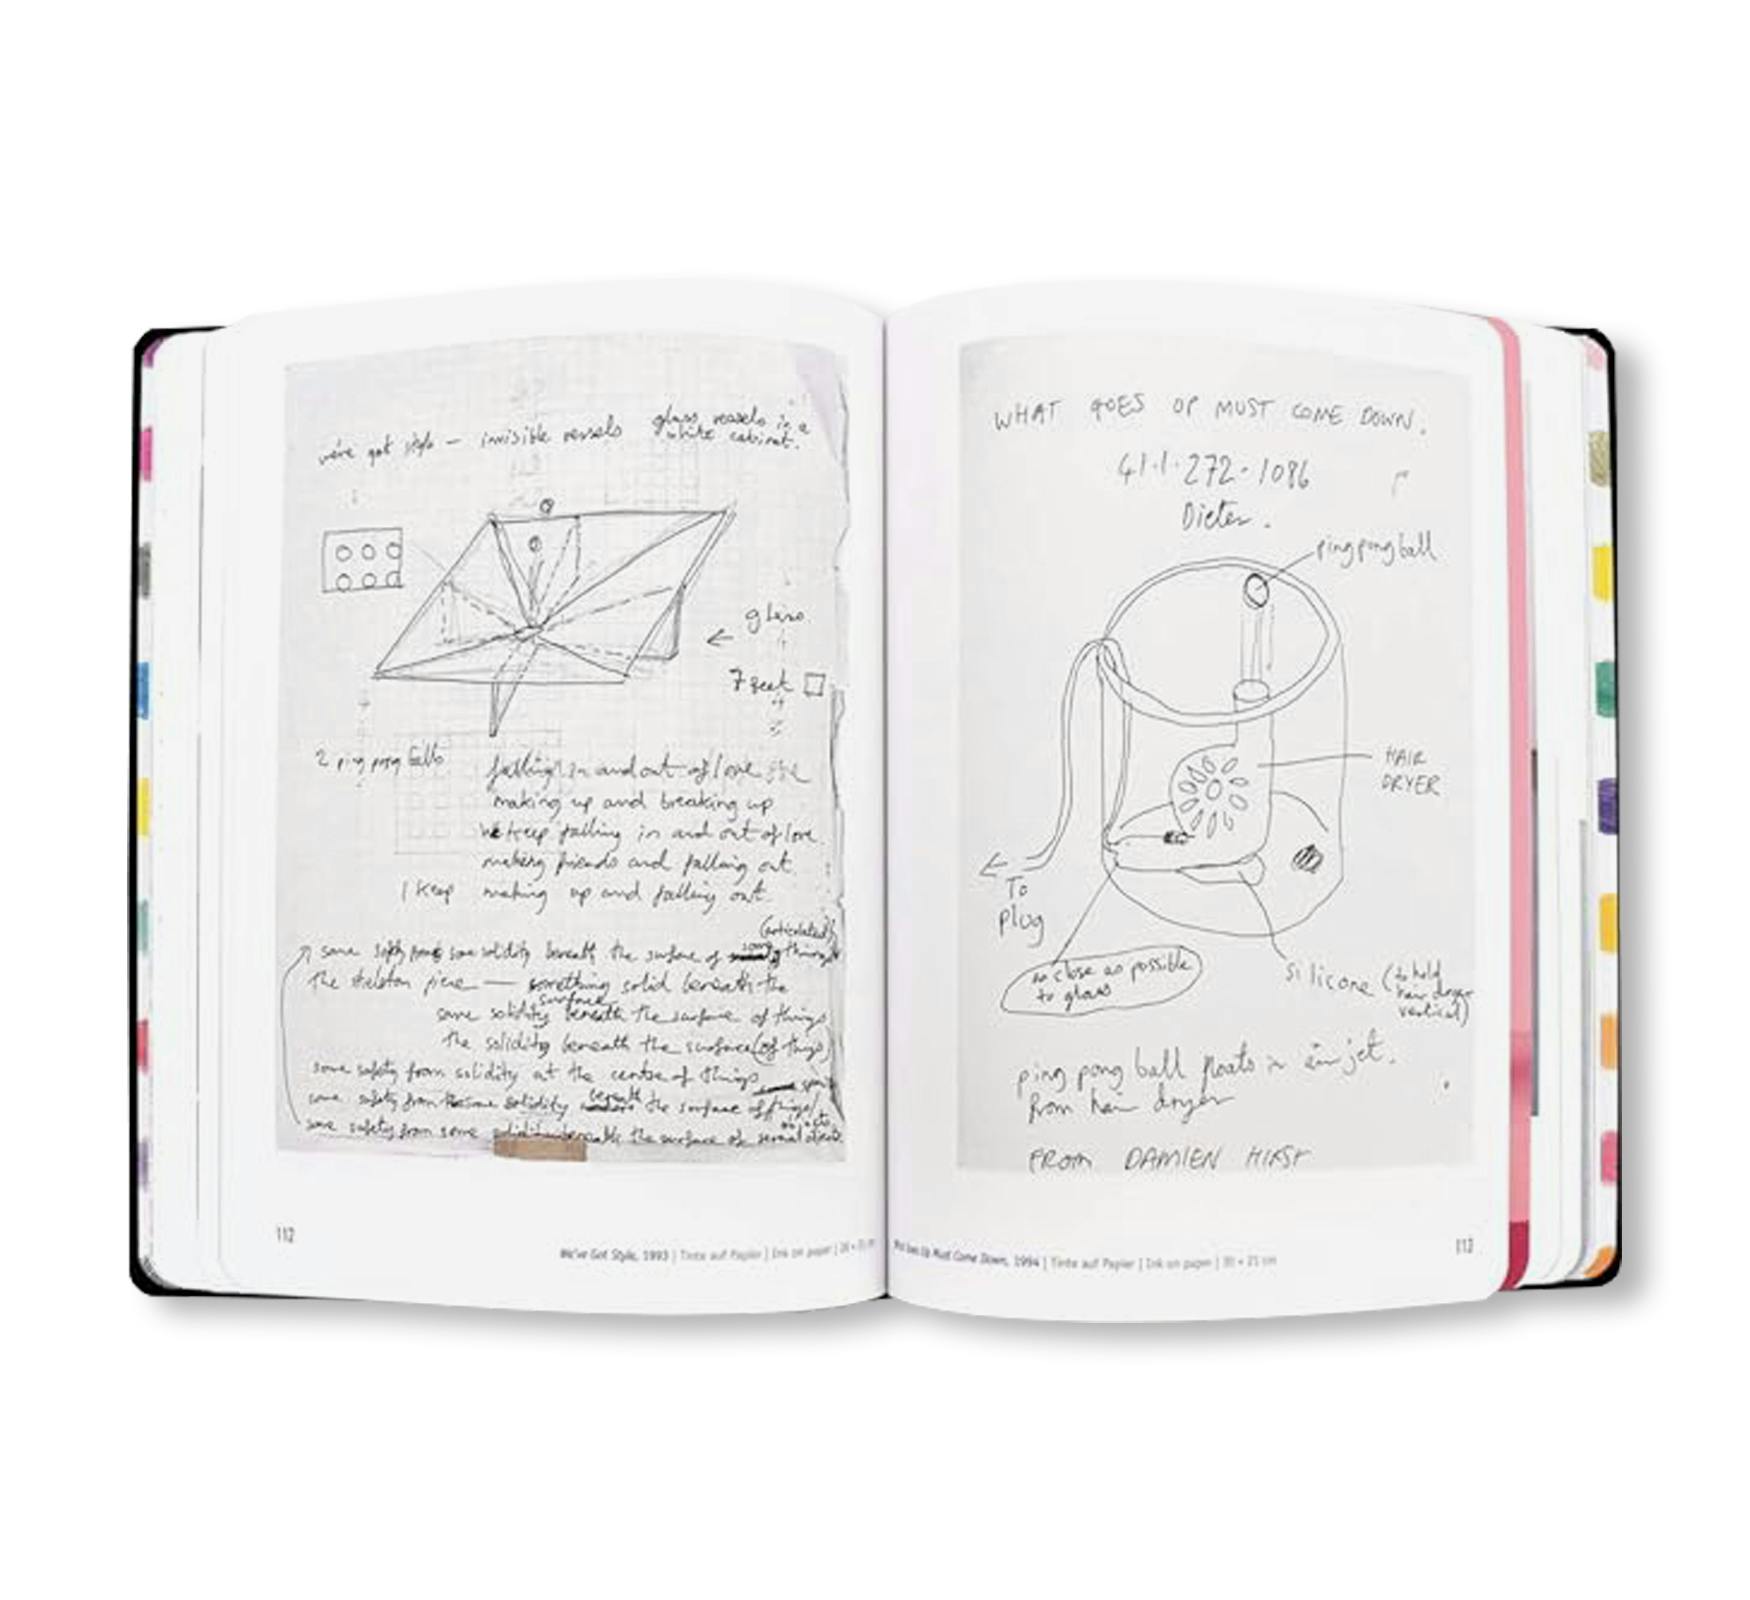 we've got style — invisible vessels
glass vessels in a
white cabinet.
glass
7 feet
2 ping pong balls
falling in and out of love
making up and breaking up
We keep falling in and out of love
making friends and falling out
I keep making up and falling out.
(articulated)
some safety from some solidity beneath the surface of some things
the skeleton piece — something solid beneath the
surface
some solidity beneath the surface of things
the solidity beneath the surface (of things)
some safety from solidity at the centre of things
some safety from some solidity beneath the surface of things
some safety from some solidity beneath the surface of several objects
112
We've Got Style, 1993 | Tinte auf Papier | Ink on paper |
WHAT GOES UP MUST COME DOWN.
41·1·272·1086
Dieter.
ping pong ball
HAIR
DRYER
To
plug
as close as possible
to glass
silicone (to hold
hair dryer
vertical)
ping pong ball floats in air jet.
from hair dryer
FROM DAMIEN HIRST
Must Come Down, 1994 | Tinte auf Papier | Ink on paper | 30 × 21 cm
113